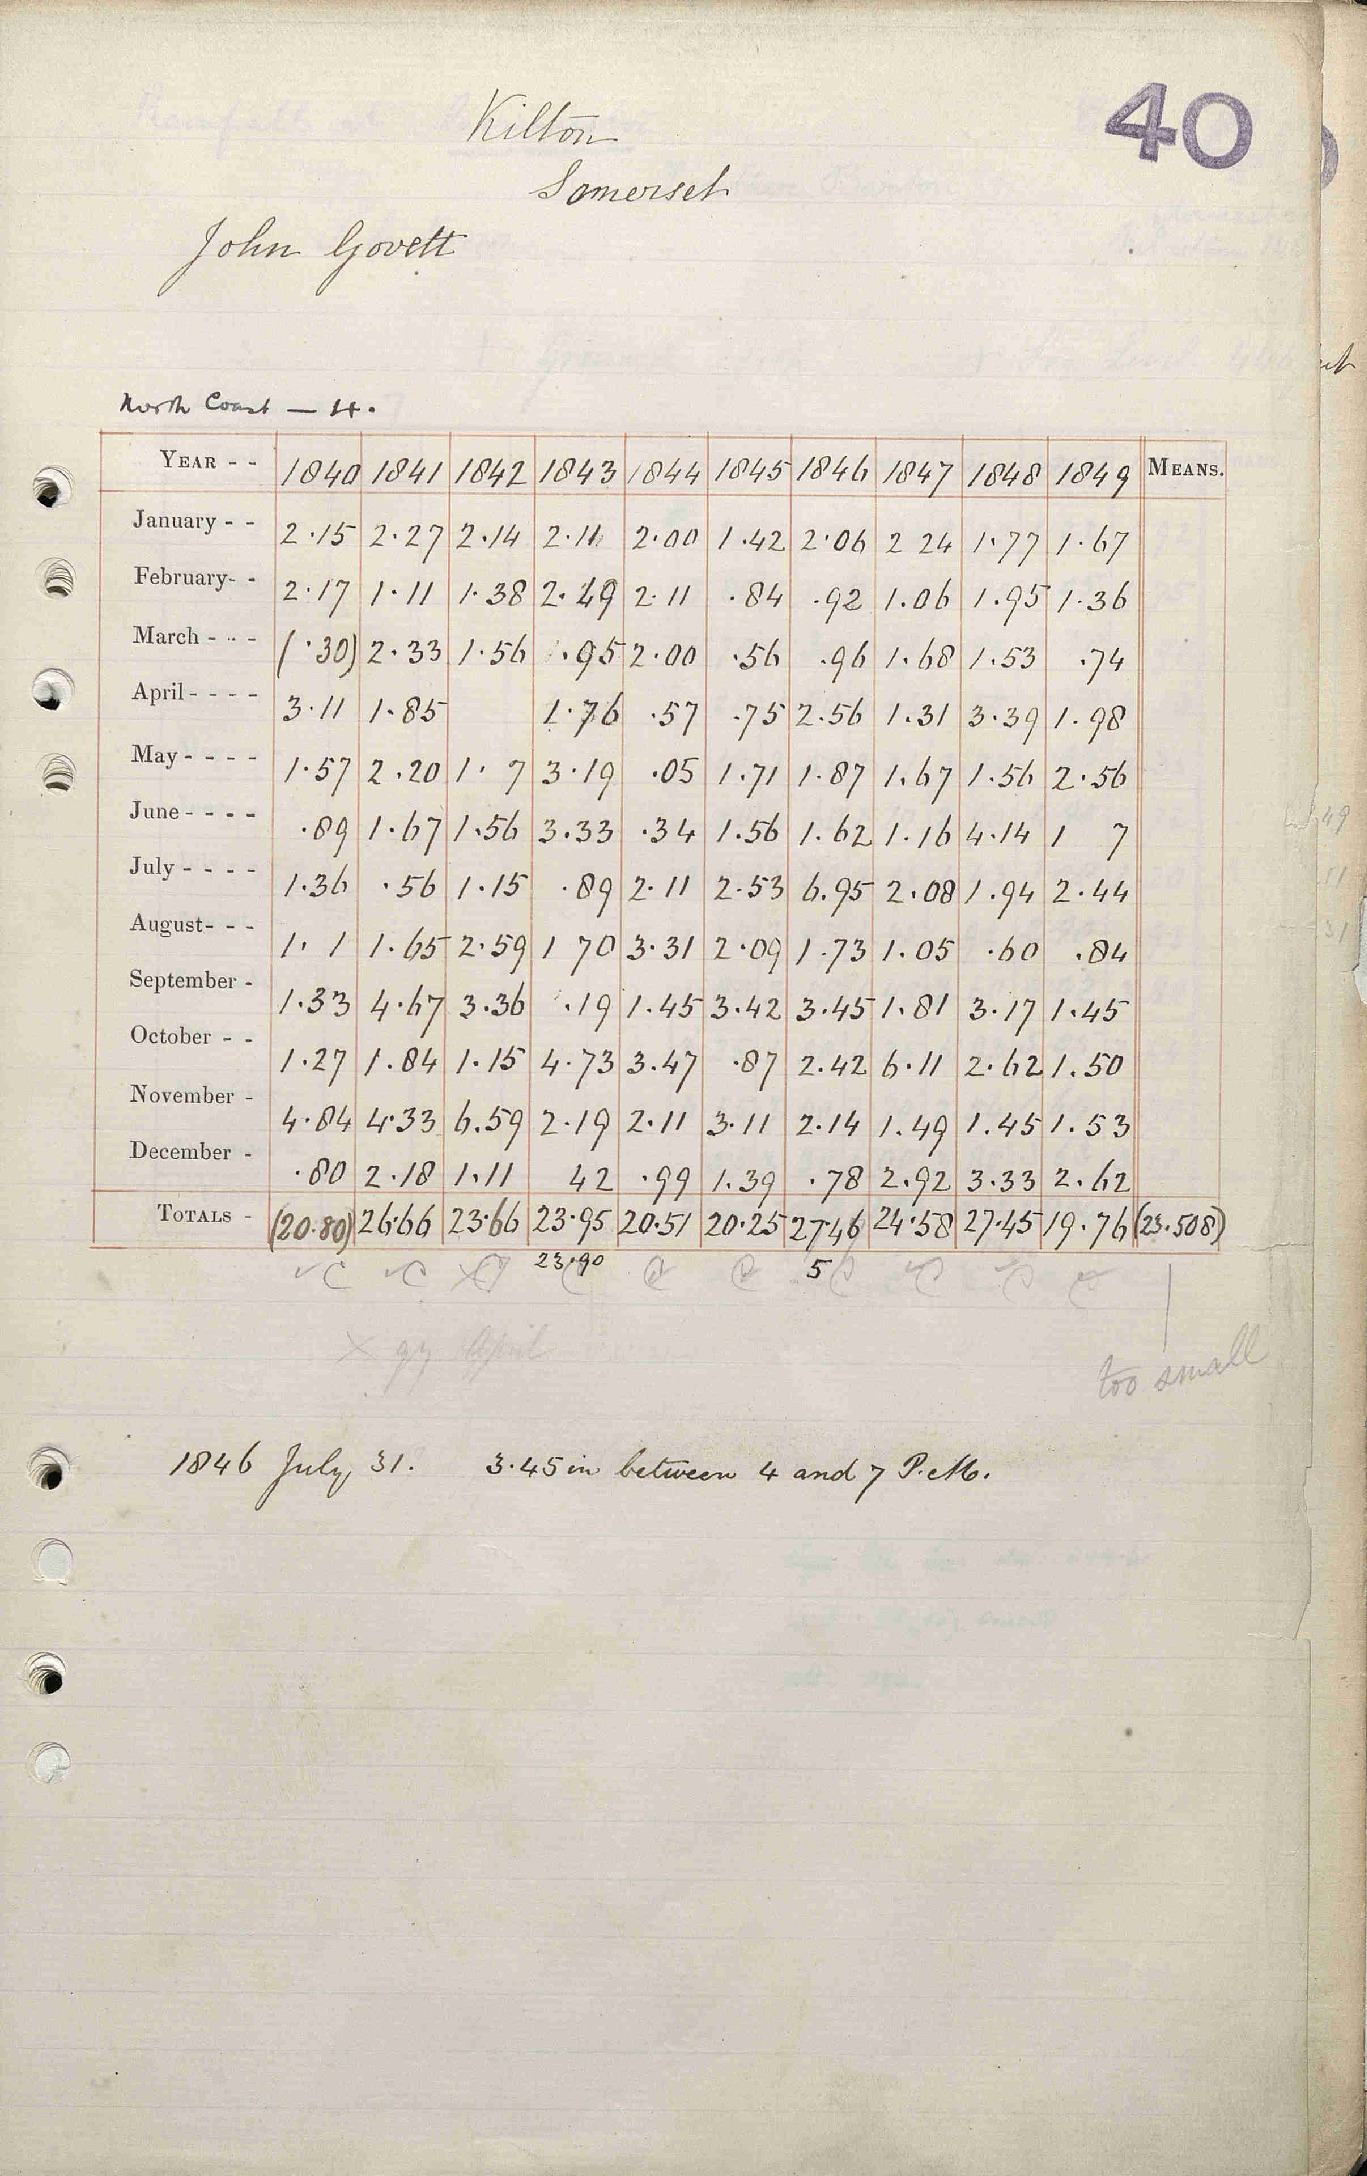 40
Kilton
Somerset
John Govett
North Coast — 4.
YEAR - - 1840 1841 1842 1843 1844 1845 1846 1847 1848 1849 MEANS.
January - - 2.15 2.27 2.14 2.11 2.00 1.42 2.06 2 24 1.77 1.67
February- - 2.17 1.11 1.38 2.49 2.11 .84 .92 1.06 1.95 1.36
March - - - (.30) 2.33 1.56 .95 2.00 .56 .96 1.68 1.53 .74
April - - - - 3.11 1.85 1.76 .57 .75 2.56 1.31 3.39 1.98
May - - - - 1.57 2.20 1. 7 3.19 .05 1.71 1.87 1.67 1.56 2.56
June - - - - .89 1.67 1.56 3.33 .34 1.56 1.62 1.16 4.14 1 7
July - - - - 1.36 .56 1.15 .89 2.11 2.53 6.95 2.08 1.94 2.44
August- - - 1. 1 1.65 2.59 1 70 3.31 2.09 1.73 1.05 .60 .84
September - 1.33 4.67 3.36 .19 1.45 3.42 3.45 1.81 3.17 1.45
October - - 1.27 1.84 1.15 4.73 3.47 .87 2.42 6.11 2.62 1.50
November - 4.84 4.33 6.59 2.19 2.11 3.11 2.14 1.49 1.45 1.53
December - .80 2.18 1.11 42 .99 1.39 .78 2.92 3.33 2.62
TOTALS - (20.80) 26.66 23.66 23.95 20.51 20.25 27.46 24.58 27.45 19.76 (23.508)
23.90 5
× qy April
too small
1846 July 31. 3.45 in between 4 and 7 P.M.